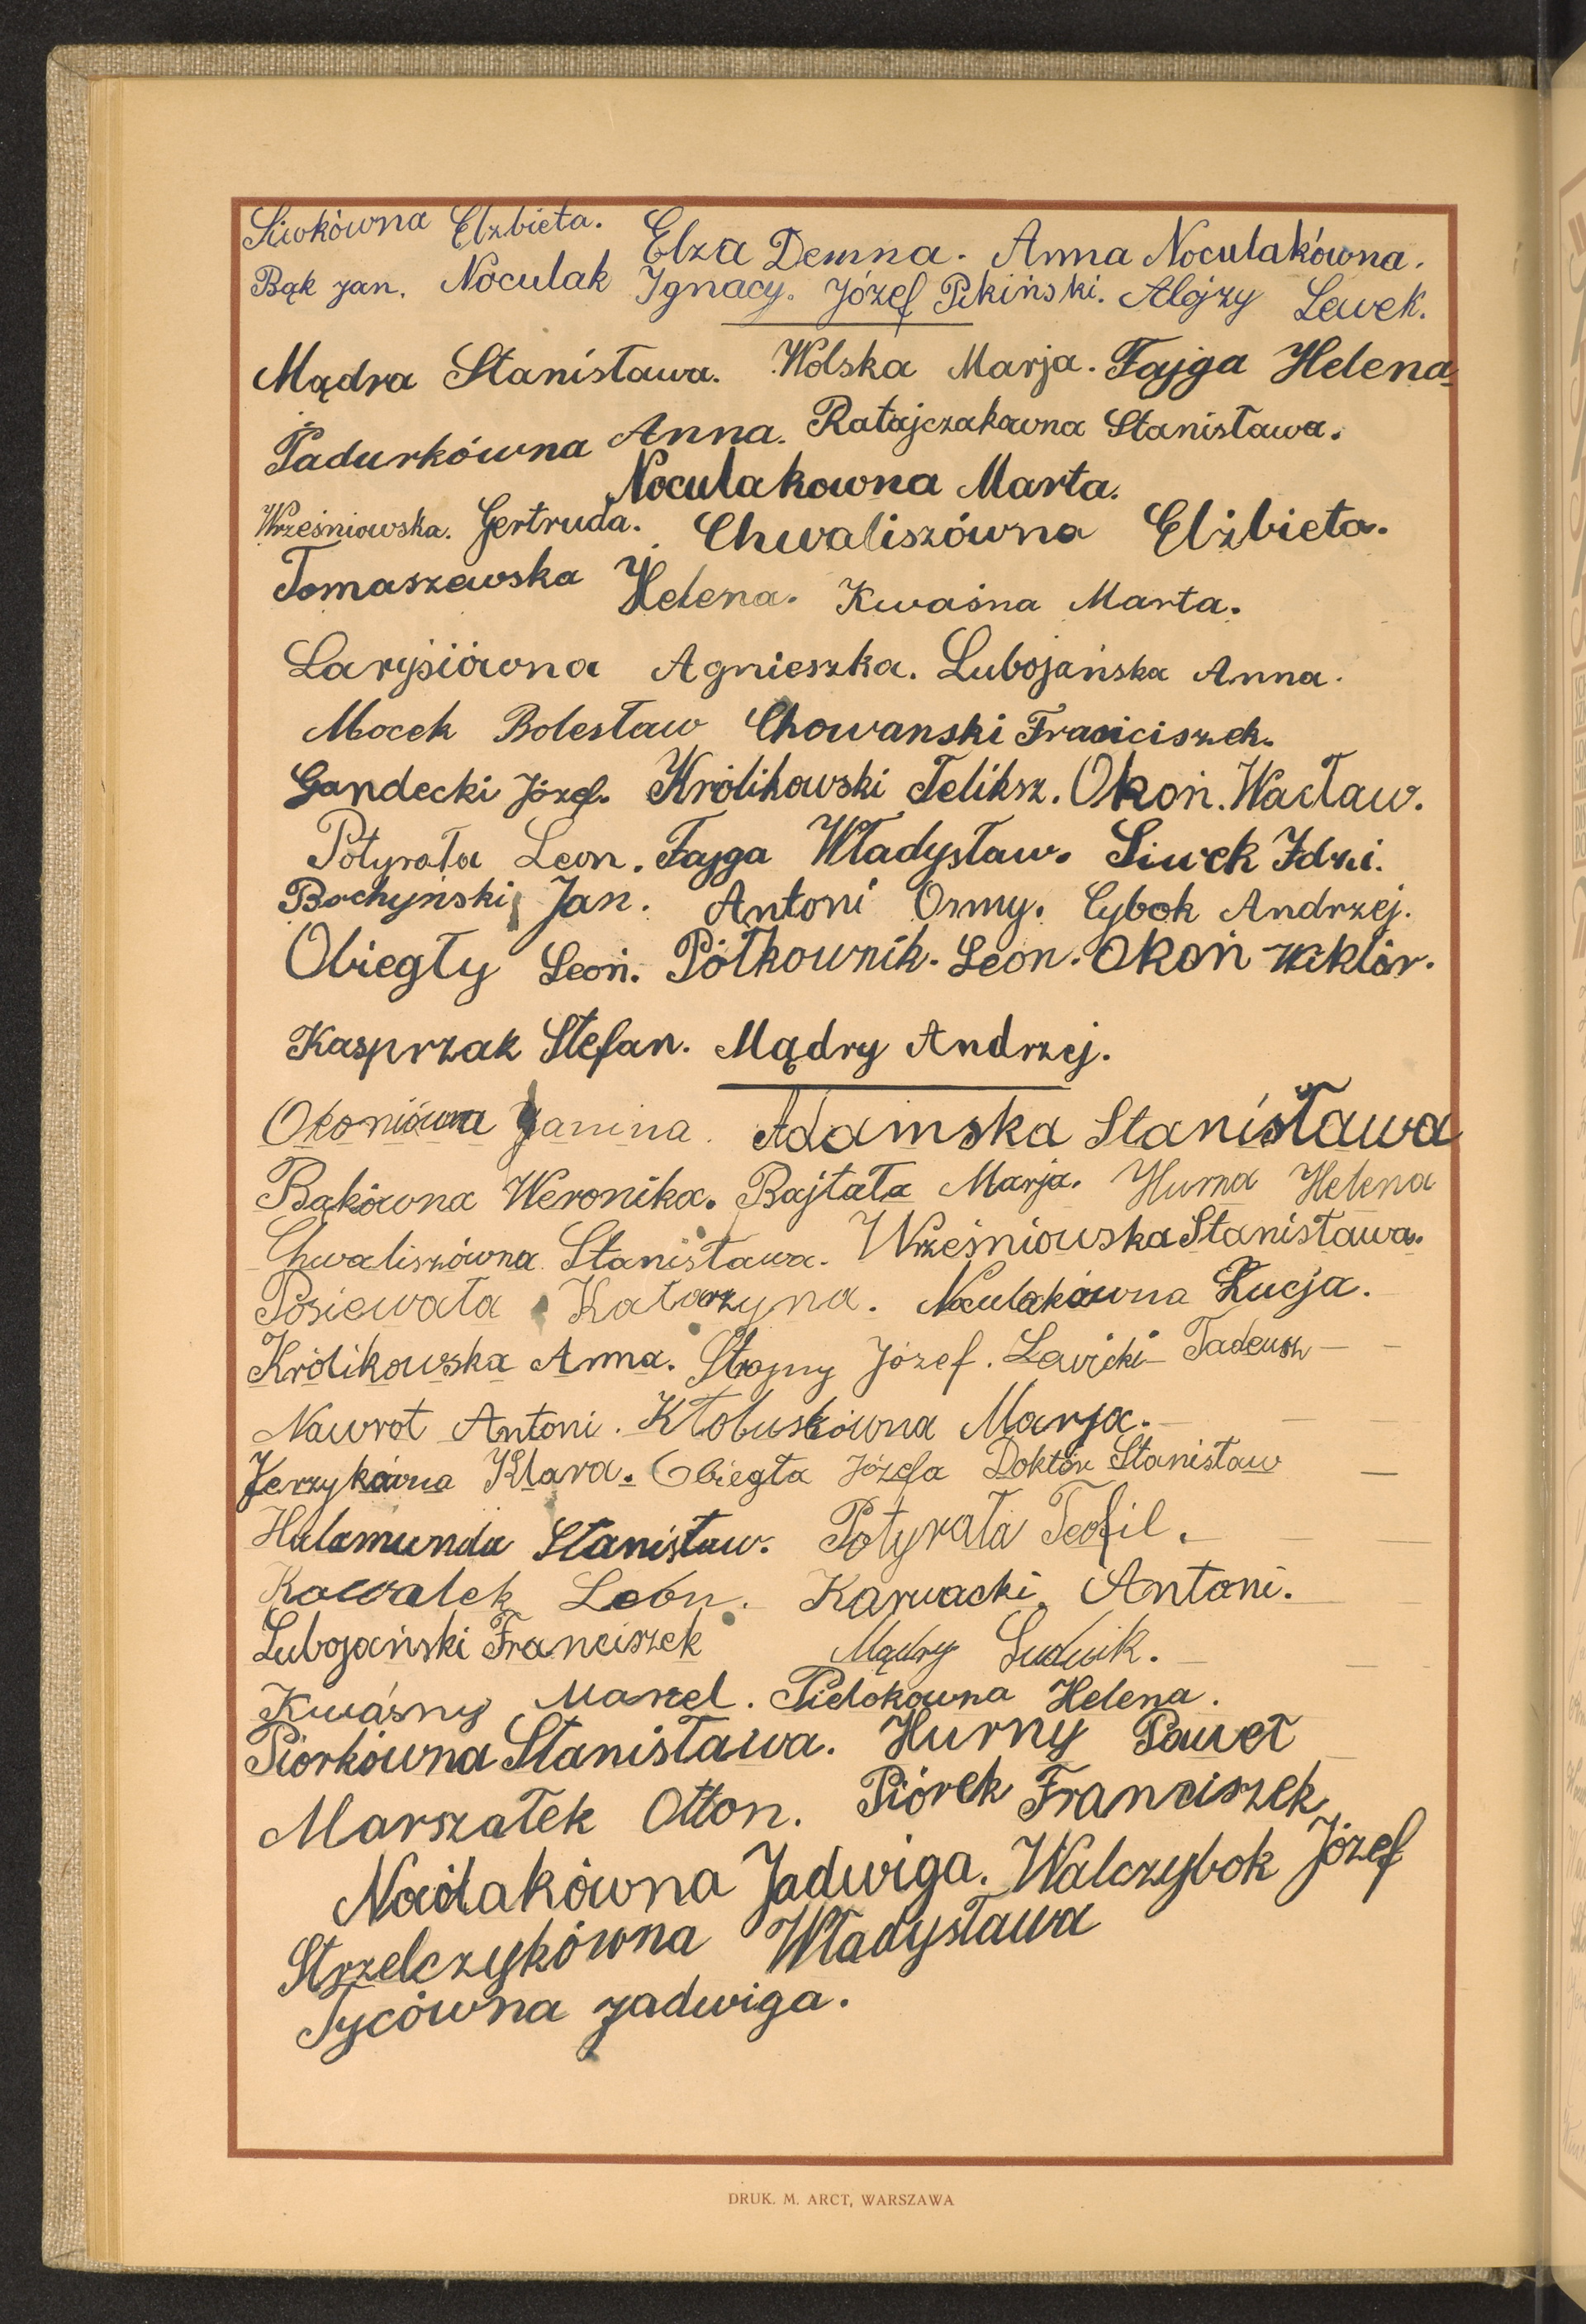 Siwkówna Elżbieta. Elza Demna. Anna Noculakówna.
Bąk Jan. Noculak Ignacy. Józef Pikiński. Alojzy Lewek.
Mądra Stanisława. Wolska Marja. Fajga Helena
Padurkówna Anna. Ratajczakówna Stanisława.
Noculakowna Marta.
Wrześniowska. Gertruda. Chwaliszówna Elżbieta.
Tomaszewska Helena. Kwaśna Marta.
Larysiówna Agnieszka. Lubojańska Anna.
Mocek Bolesław Chowanski Franciciszek.
Gandecki Józef. Królikowski Feliksz. Okoń. Wacław.
Potyrała Leon. Fajga Władysław. Siwek Idzi.
Bochyński Jan. Antoni Ozmy. Cybok Andrzej.
Obiegły Leon. Półkownik. Leon. Okoń Wiktór.
Kasprzak Stefan. Mądry Andrzej.
Okoniówna Janina. Adamska Stanisława
Bąkówna Weronika. Bajtała Marja. Hurna Helena
Chwaliszówna Stanisława. Wrześniowska Stanisława.
Posiewała Katarzyna. Noculakówna Łucja.
Królikowska Anna. Strojny Józef. Lawicki Tadeusz
Nawrot Antoni. Kłobuskówna Marja.
Jerzykówna Klara. Obiegła Józefa Doktór Stanisław
Halamunda Stanisław. Potyrała Teofil.
Kowalek León. Karwacki Antoni.
Lubojański Franciszek Mądry Ludwik.
Kwaśny Marzel. Pielokowna Helena.
Piorkówna Stanisława. Hurny Paweł
Marszałek Otton. Piórek Franciszek
Jadwiga. Walczybok Józef
Strzelczykówna Władysława
Tycówna Jadwiga.
DRUK. M. ARCT, WARSZAWA